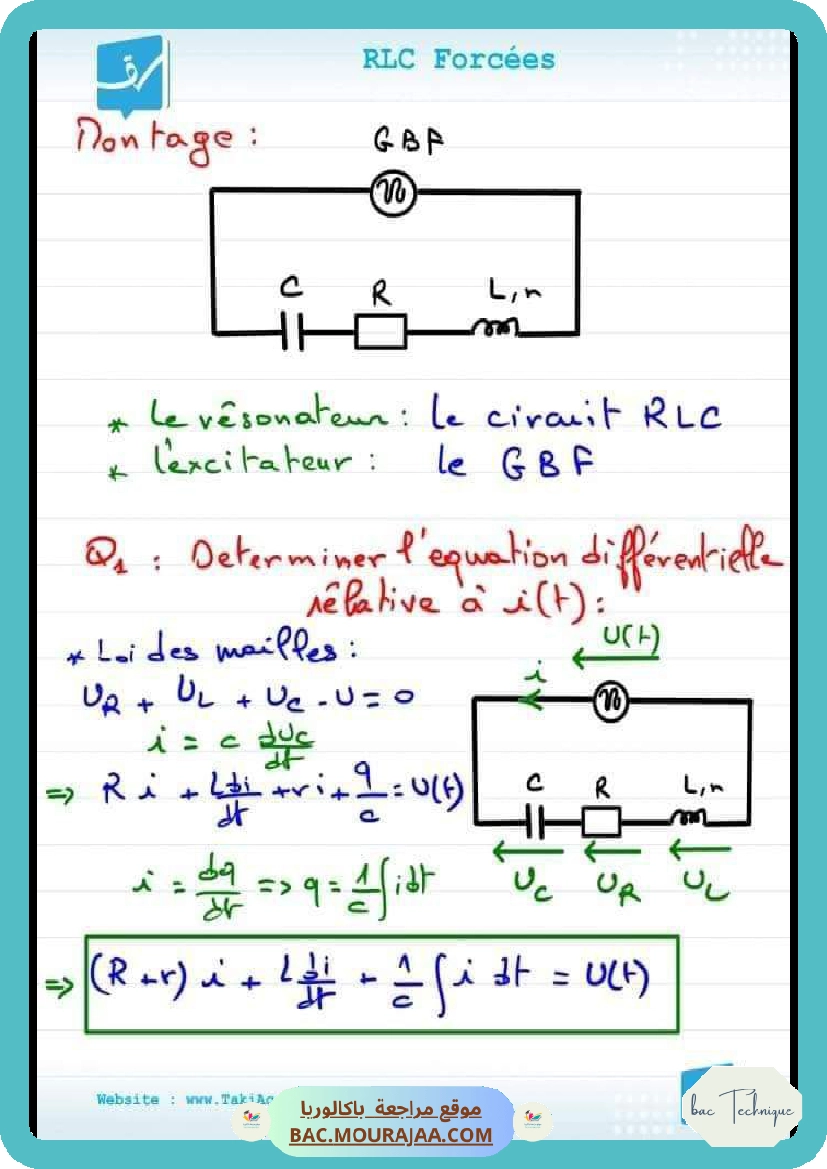 RLC Forcées
Montage :
GBF
C R L,r
* Le résonateur : le circuit RLC
* l'excitateur : le GBF
Q1 : Determiner l'equation différentielle
rélative à i(t) :
U(t)
* Loi des mailles :
i
UR + UL + UC - U = 0
i = c dUc/dt
C R L,r
=> R i + L di/dt + r i + q/c = U(t)
i = dq/dt => q = 1/c ∫ i dt
UC UR UL
=> (R + r) i + L di/dt + 1/c ∫ i dt = U(t)
Website : www.TakiAc
موقع مراجعة باكالوريا
BAC.MOURAJAA.COM
bac Technique